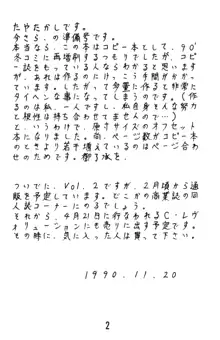 たやたかしです。
今さら、の準備号です。
本当なら、この本はコピー本として、90'
ネコミに再増刷するつもりでしたが、コピ
ー誌をもっている人ならわかると思います
が、あれは作るのにけっこう手間がかかっ
て、したがって多量に作ると非常に
タイヘンな事になってしまうのです。(作
るのは私一人ですし、私自身そんな努力
と根性は持ち合わせてませんので…)
と、いうわけで、原寸サイズのオフセット
本になりました。ページ数がコピー本
のときより若干増えているのはページ合わ
せのためです。御了承を。
ついでた、Vol.2ですが、2月頃から通
販を予定しています。どこかの商業誌の同
人誌コーナーにのるでしょう。
それから、4月21日に行なわれるC・レヴ
ォリューションにも売りに出す予定です。
その時に、気に入った人は買って下さい。
1990.11.20
2